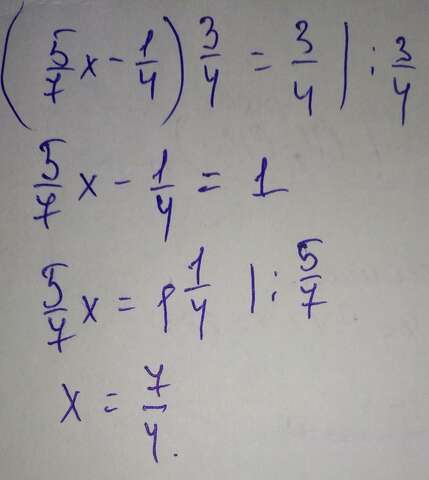 (5/7 x - 1/4) 3/4 = 3/4 | : 3/4
5/7 x - 1/4 = 1
5/7 x = 1 1/4 | : 5/7
x = 7/4.